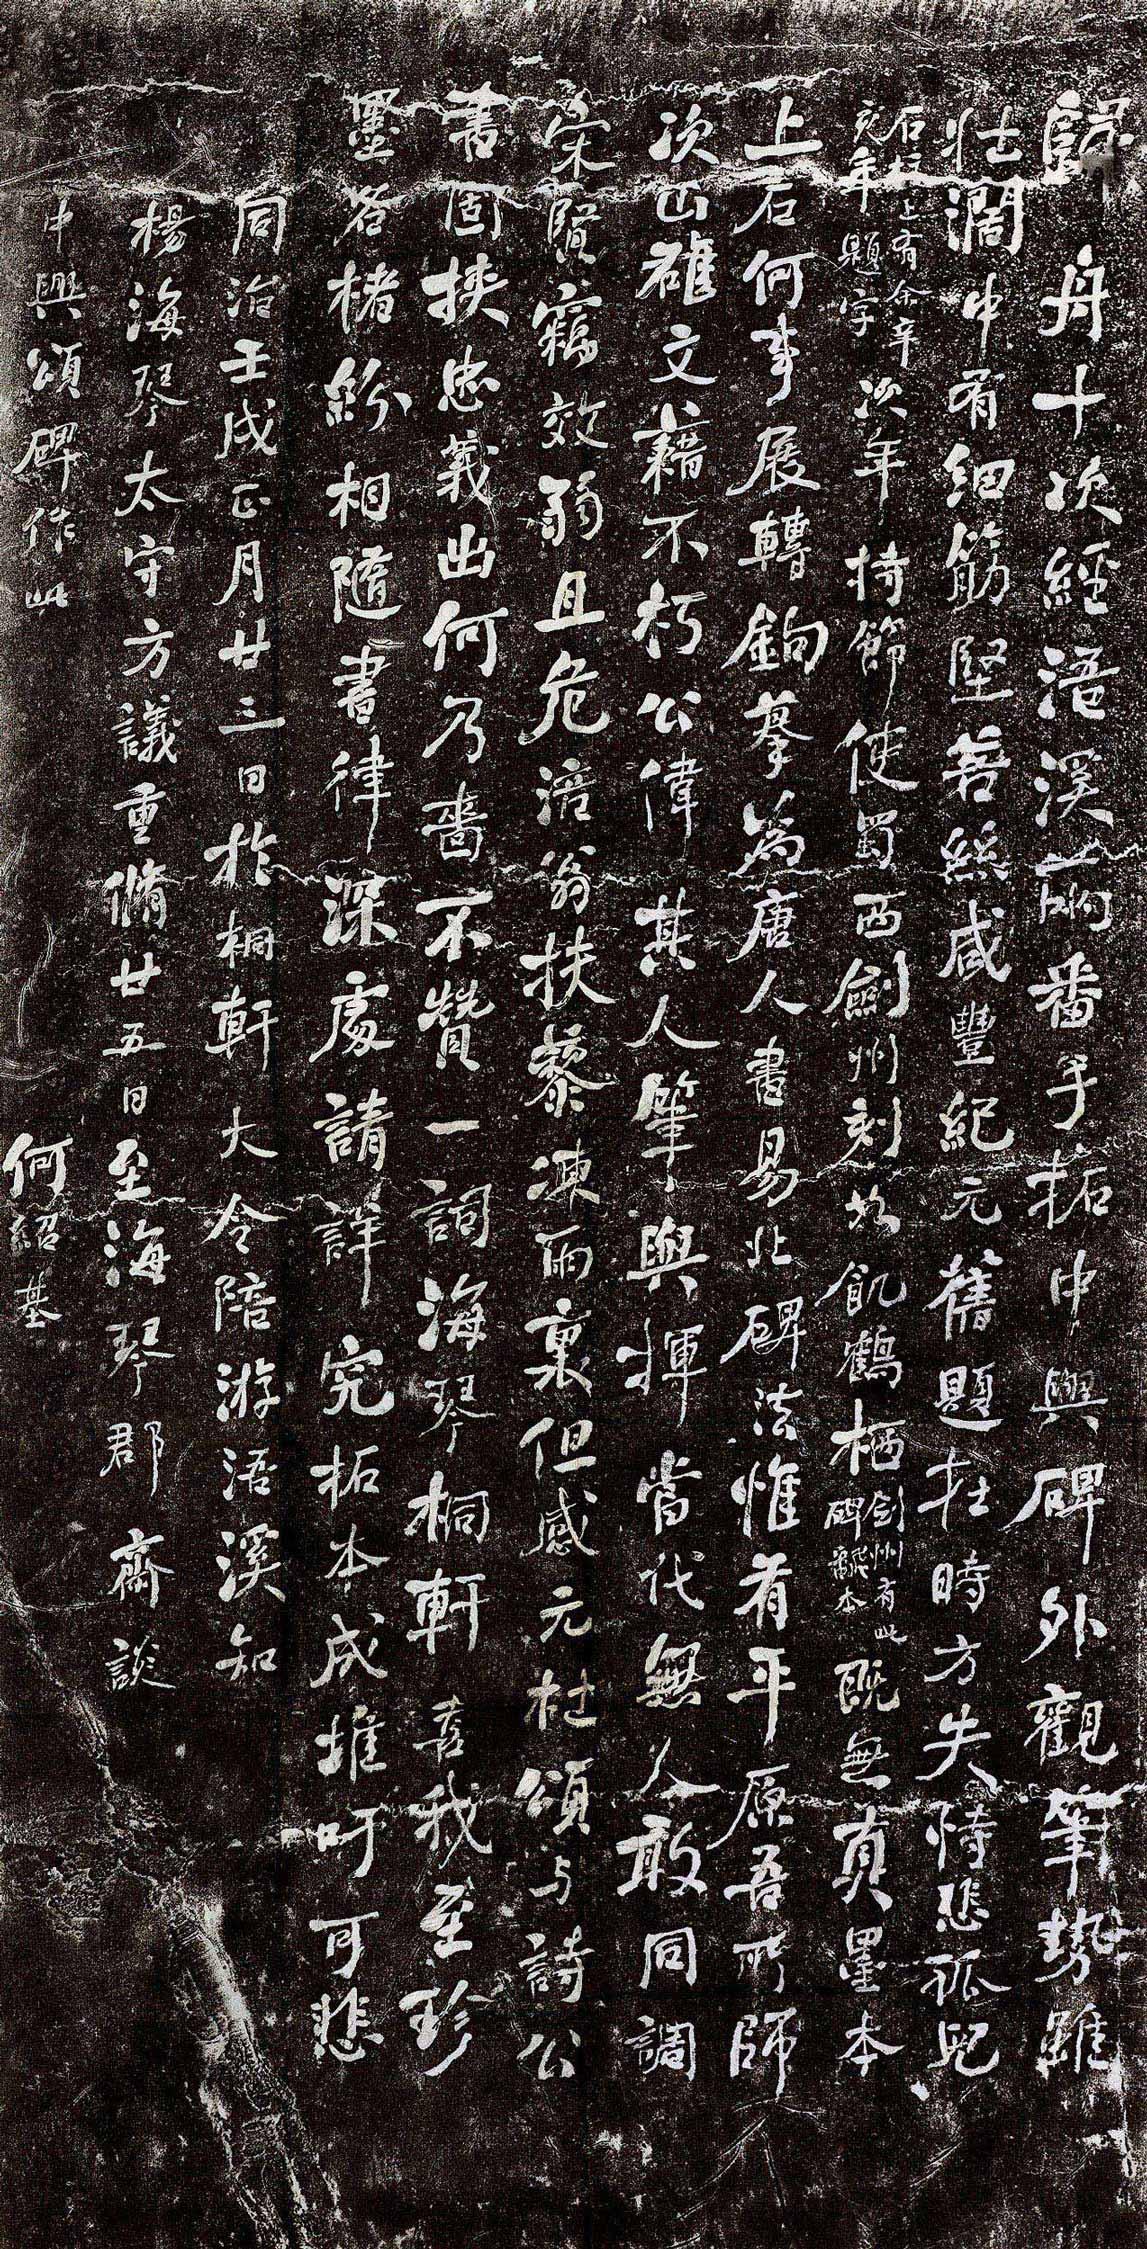 歸舟十次經浯溪兩番手拓中興碑外觀筆勢雖
壯闊中有細筋堅若絲咸豐紀元舊題在時方失恃悲孤兒
石埭上有余辛
亥年題字
次年持節使蜀西劍州刻如飢鶴栖
劍州有此
碑翻本
既無真墨本
上石何事展轉鉤摹為唐人書易北碑法惟有平原吾所師
次山雄文藉不朽公偉其人筆與揮當代無人敢同調
宋賢竊效弱且危涪翁扶藜凍雨裏但感元杜頌與詩公
書固挾忠義出何乃嗇不贊一詞海琴桐軒喜我至珍
墨名楮紛相隨書律深處請詳究拓本成堆吁可悲
同治壬戌正月廿三日於桐軒大令陪游浯溪知
楊海琴太守方議重脩廿五日至海琴郡齋談
中興頌碑作此
何紹基